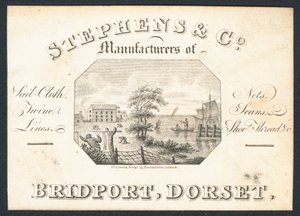 STEPHENS & Co.
Manufacturers of
Sail Cloth,
Twine,
Lines.
Nets,
Seans,
Shoe Thread &c
BRIDPORT, DORSET,